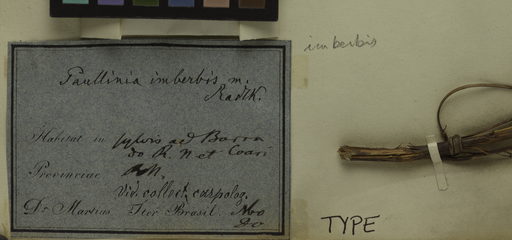 Paullinia imberbis m.
Radlk.
imberbis
Habitat in sylvis ad Barra
do R. N et Coari
Provinciae R. N.
Vid. collect. carpolog.
Dr. Martius. Iter Brasil.
TYPE